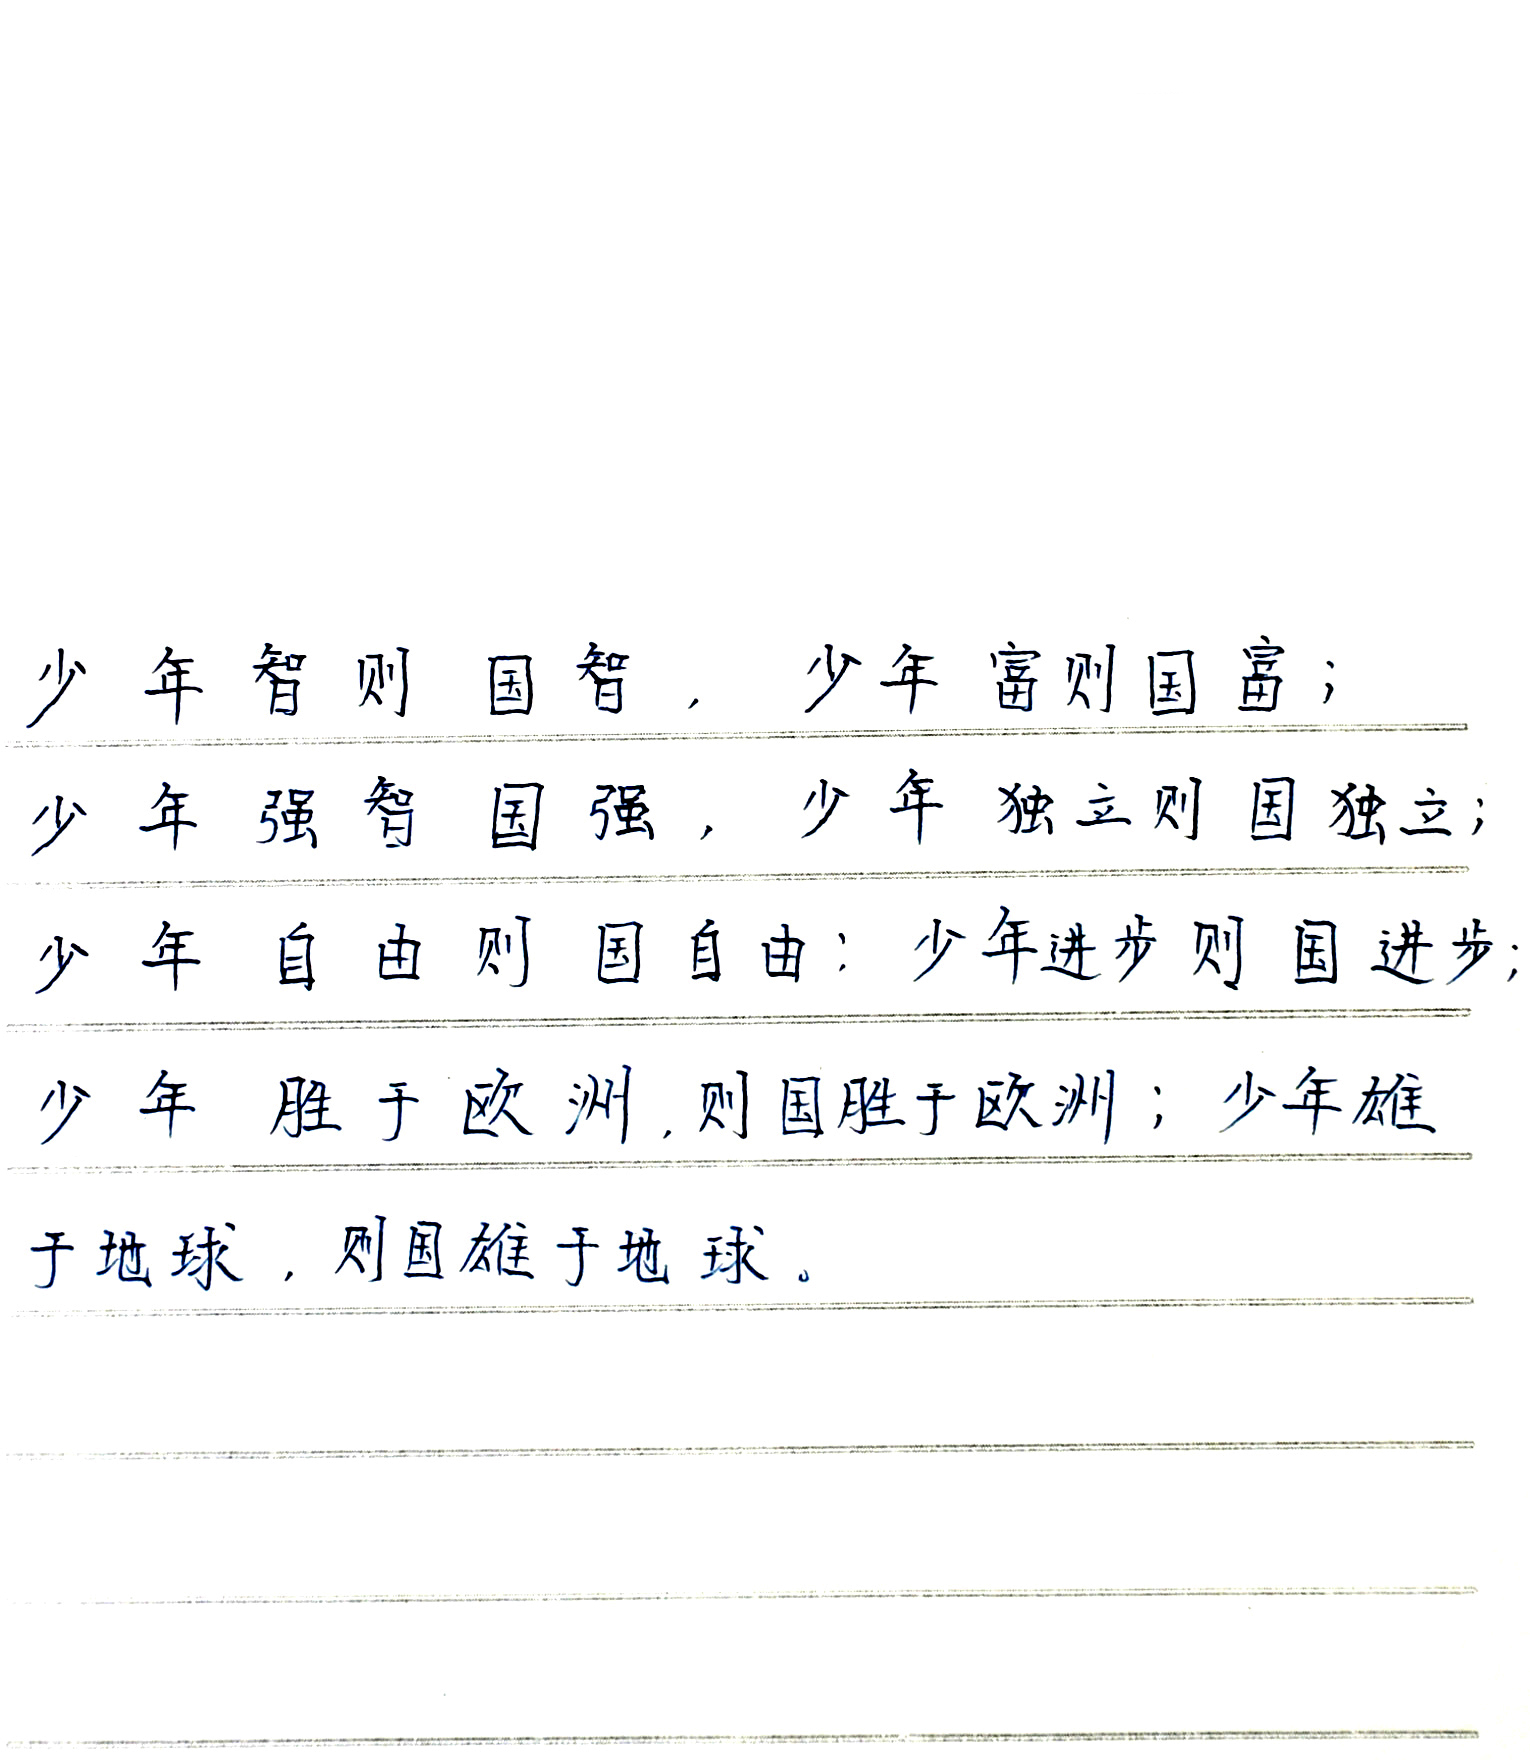 少年智则国智，少年富则国富；
少年强智国强，少年独立则国独立；
少年自由则国自由；少年进步则国进步；
少年胜于欧洲，则国胜于欧洲；少年雄
于地球，则国雄于地球。